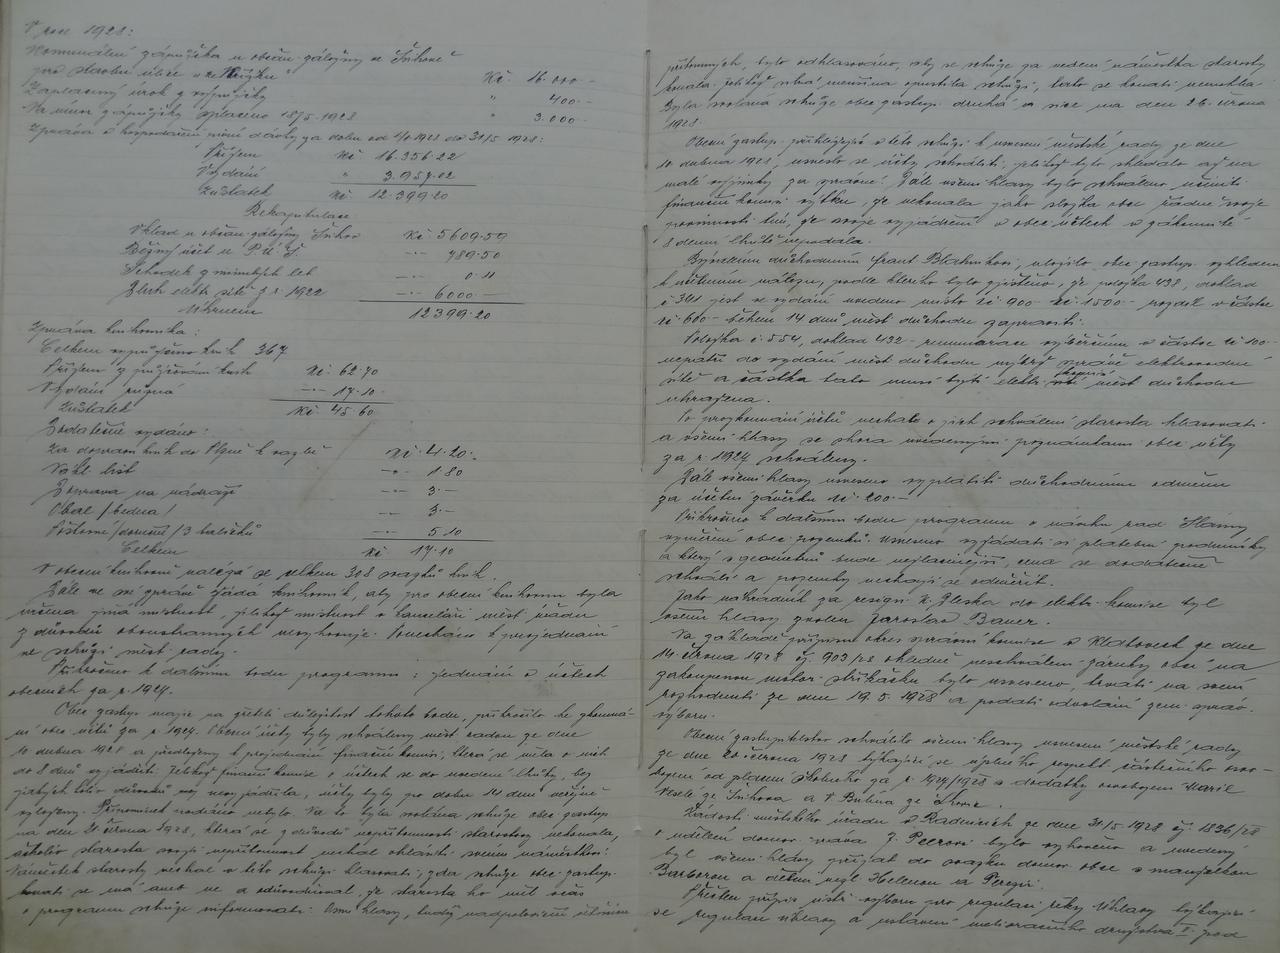 V roce 1928:
Komunální zápůjčka u občan. záložny ve Švihově
pro stavbu silnice "
Kč 16.000 -
Zaplacený úrok z výpůjčky " 400 -
Na úmor zápůjčky splaceno 18/5 1928 " 3.000 -
Zpráva o hospodaření pivní dávky za dobu od 1/1 1928 do 31/5 1928:
Příjem Kč 16.356.22
Vydání " 3.957.02
Zůstatek Kč 12.399.20
Rekapitulace
Vklad u občan. záložny Švihov Kč 5609.59
Běžný účet u P. ú. š. -"- 789.50
Schodek z minulých let -"- 0.11
Dluh elektr. sítě z r. 1922 -"- 6000 -
Úhrnem 12399.20
Zpráva knihovníka:
Celkem vypůjčeno knih 367
Příjem z půjčování knih Kč 62.70
Vydání různá -"- 17.10
Zůstatek Kč 45.60
Dodatečně vydáno:
Za dovoz knih do Plzně k vazbě Kč 4.20
Nákl. list -"- 1.80
Doprava na nádraží -"- 3.-
Obal /bedna/ -"- 3.-
Poštovné /dovozné/ 3 balíčků -"- 5.10
Celkem Kč 17.10
V obecní knihovně nalézá se celkem 308 svazků knih.
Dále ve své zprávě žádá knihovník, aby pro obecní knihovnu byla
určena jiná místnost, jelikož místnost v kanceláři měst. úřadu
z důvodů oboustranných nevyhovuje. Ponecháno k projednání
ve schůzi měst. rady.
Přikročeno k dalšímu bodu programu: jednání o účtech
obecních za r. 1927.
Obec. zastup. majíc na zřeteli důležitost tohoto bodu, přikročilo ke zkoumá-
ní obec. účtů za r. 1927. Obecní účty byly schváleny měst. radou ze dne
10. dubna 1928 a předloženy k projednání finanční komisi, která se měla o nich
do 8 dnů vyjádřiti. Jelikož finanční komise o účtech se do uvedené lhůty, bez
jakýchkoliv důvodů nevyjádřila, účty byly po dobu 14 dnů veřejně
vyloženy. Připomínek podáno nebylo. Na to byla svolána schůze obec. zastup.
na den 21. června 1928, která se z důvodů nepřítomnosti starostovy nekonala,
ačkoliv starosta svoji nepřítomnost nechal ohlásiti svému náměstkovi.
Náměstek starosty nechal v této schůzi hlasovati, zda schůze obec. zastup.
konati se má anebo ne a odůvodňoval, že starosta ho měl včas
o programu schůze informovati. Osmi hlasy, tudíž nadpoloviční většinou
přítomných, bylo odhlasováno, aby se schůze za vedení náměstka starosty
konala. Jelikož však menšina opustila schůzi, tato se konati nemohla.
Byla svolána schůze obec. zastup. druhá a sice na den 26. června
1928.
Obecní zastup. přihlížejíc v této schůzi k usnesení městské rady ze dne
10. dubna 1928, usneslo se účty schváliti, jelikož bylo shledáno až na
malé vyjímky za správné. Dále všemi hlasy bylo schváleno učiniti
finanční komisi výtku, že nekonala jako složka obce řádně svoje
povinnosti tím, že svoje vyjádření o obec. účtech v zákonité
8 denní lhůtě nepodala.
Bývalému důchodnímu Frant. Blahníkovi, uložilo obec. zastup. vzhledem
k účetnímu nálezu, podle kterého bylo zjištěno, že položka 438, doklad
č. 341 jest ve vydání uvedeno místo Kč 900 - Kč 1500 - rozdíl v částce
Kč 600 - během 14 dnů měst. důchodu zapraviti.
Položka č. 554, doklad 432 - remunerace výběrčímu v částce Kč 100 -
nepatří do vydání měst. důchodu nýbrž správě elektrovodné
sítě a částka tato musí býti elektr. komisí měst. důchodu
uhražena.
Po prozkoumání účtů nechal o jich schválení starosta hlasovati
a všemi hlasy se shora uvedenými poznámkami obec. účty
za r. 1927 schváleny.
Dále všemi hlasy usneseno vyplatiti důchodnímu odměnu
za účetní závěrku Kč 200.-
Přikročeno k dalšímu bodu programu o návrhu rad. Slámy
vyměření obec. pozemků. Usneseno vyžádati si platební podmínky
a který z geometrů bude nejlacinější, cena se dodatečně
schválí a pozemky nechají se odměřiti.
Jako náhradník za resign. K. Zleska do elektr. komise byl
všemi hlasy zvolen Jaroslav Bauer.
Na základě přípisu okres. správní komise v Klatovech ze dne
14. června 1928 čj. 903/28 ohledně neschválení záruky obcí na
zakoupenou motor. stříkačku bylo usneseno, trvati na svém
rozhodnutí ze dne 19.5.1928 a podati odvolání zem. správ.
výboru.
Obecní zastupitelstvo schválilo všemi hlasy usnesení městské rady
ze dne 20. června 1928 týkající se úplného respekt. částečného osvo-
bození od placení školného za r. 1927/1928 a dodatky osvobození Marie
Veselé ze Švihova a V. Bulína ze
Žádosti městského úřadu v Radnicích ze dne 31/5 1928 čj. 1836/28
o udělení domov. práva J. Peerovi bylo vyhoveno a uvedený
byl všemi hlasy přijat do svazku domov. obce s manželkou
Barborou a dětmi Helenou
Přečten přípis výboru pro regulaci řeky Úhlavy týkající
se regulace Úhlavy a ustavení melioračního družstva II. pod